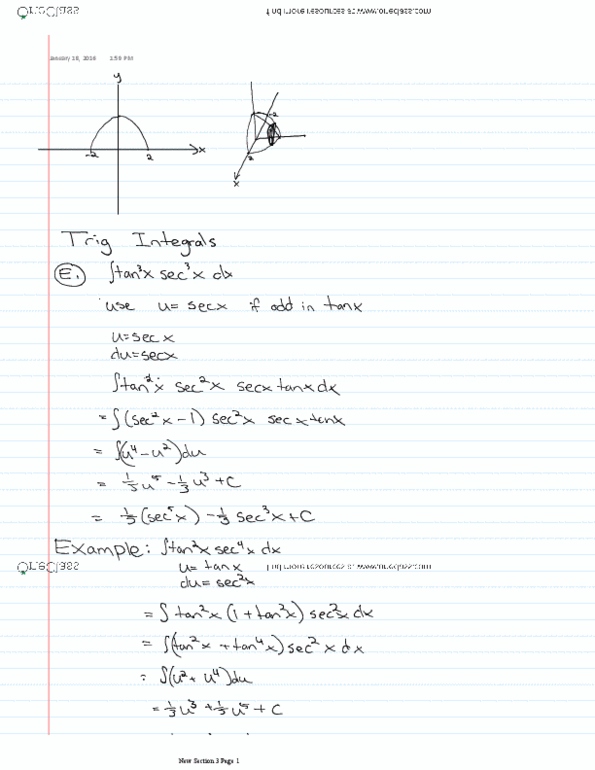 OneClass find more resources at www.oneclass.com
January 18, 2016 1:59 PM
y
-2 2 x
-2
2
x
Trig Integrals
E. ∫tan³x sec³x dx
use u= secx if odd in tanx
u=sec x
du=secx
∫tan²x sec²x secx tanx dx
= ∫(sec²x -1) sec²x secxtanx
= ∫(u⁴-u²)du
= 1/5 u⁵ - 1/3 u³ + C
= 1/5 (sec⁵x) - 1/3 sec³x + C
Example: ∫tan²x sec⁴x dx
OneClass find more resources at www.oneclass.com
u= tanx
du= sec²x
= ∫ tan²x (1 + tan²x) sec²x dx
= ∫(tan²x + tan⁴x) sec²x dx
= ∫(u² + u⁴)du
= 1/3 u³ + 1/5 u⁵ + C
New Section 3 Page 1